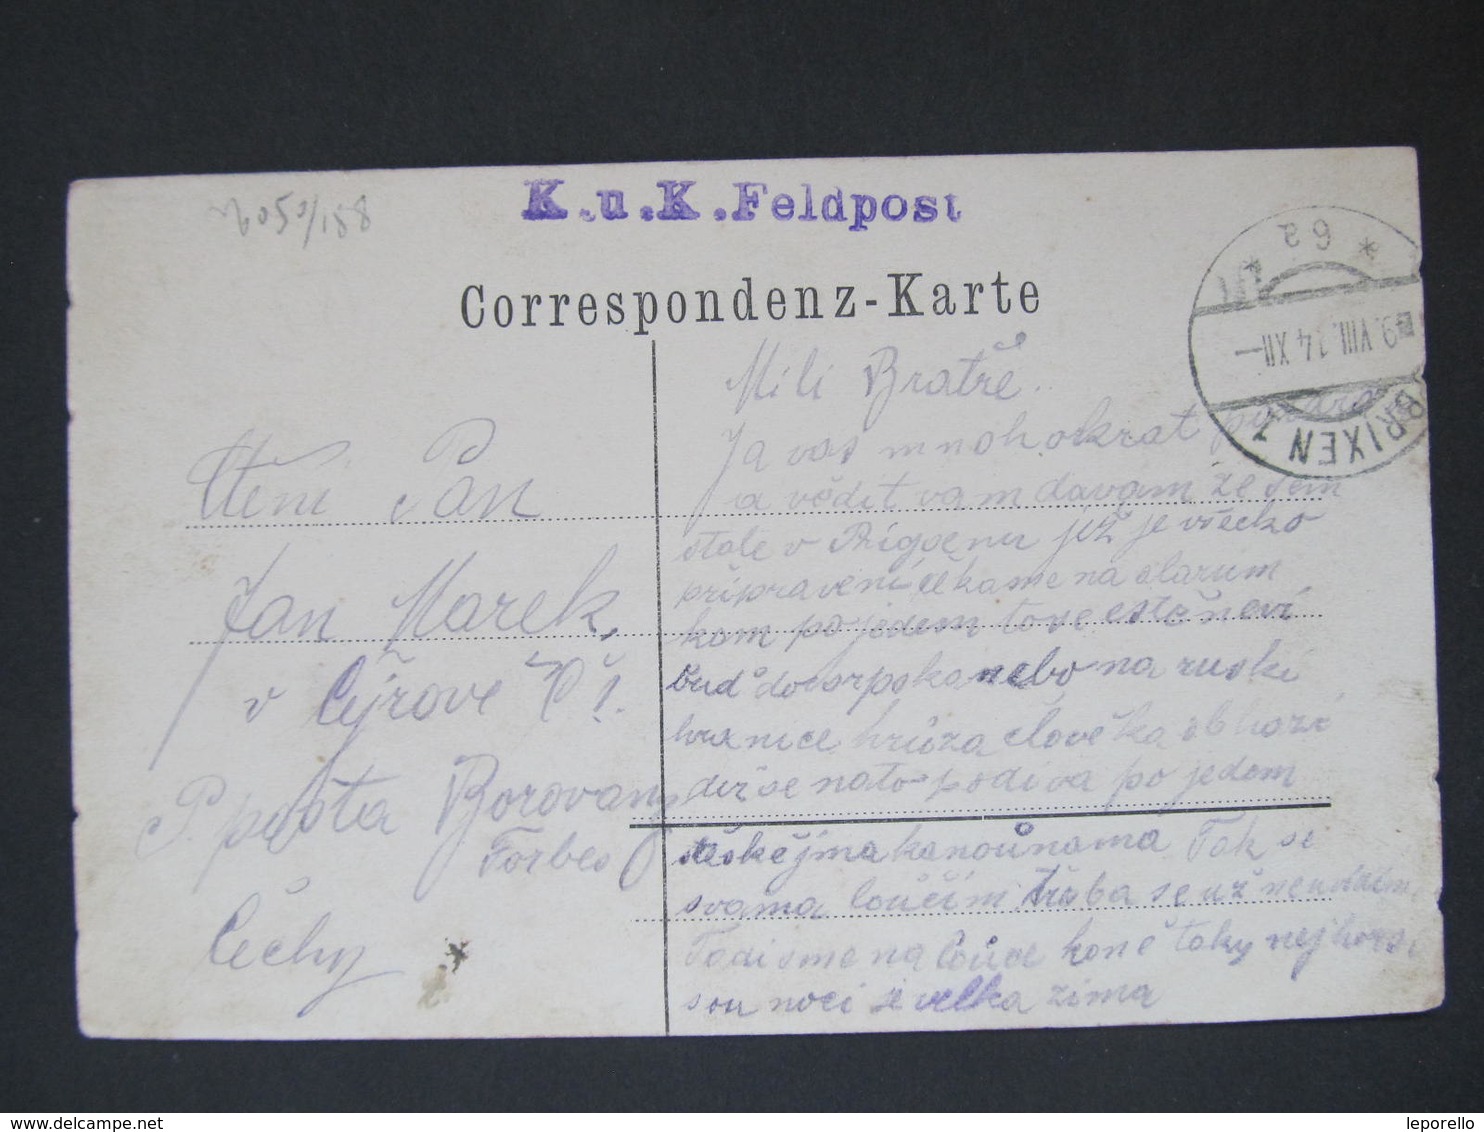 K.u.K.Feldpost
Correspondenz-Karte
6050/188
* 6a
9.VIII.14 XII-
BRIXEN 1
Ctěni Pan
Jan Marek,
v Cyřove Č 1.
P. posta Borovany
Forbes
Čechy
Mili Bratře.
Ja vas mnohokrat
a vědit vam davam že sem
stale v Prigsenu již je všecko
připraveni čekame na alarum
kam pojedem to se ještě neví
buď do Sorpska nebo na ruski
hranice hrůza človeka obhazi
diž se nato podiva pojedem
steskejma kanounama Tak se
svama loučim třeba se už neuvidime
Tadi sme na louce koně taky nejhorsi
sou noci je velka zima
leporello